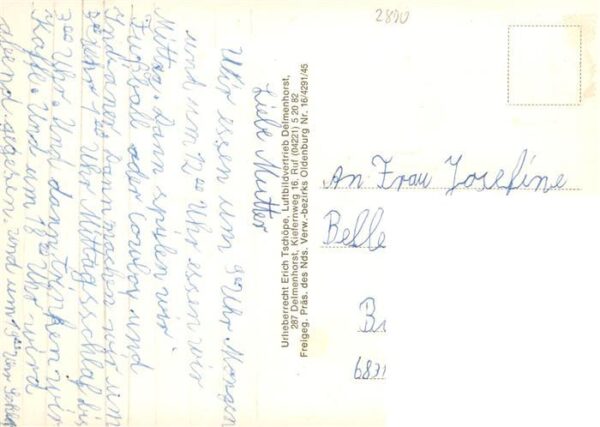 2890
Liebe Mutter
Uhr essen um 9 00 Uhr Morgen
und um 12 00 Uhr essen wir
Mittag. Dann spielen wir
Fußball oder Cowboy und
Indianer. Dann machen wir um
Uhr Mittagsschlaf bis
3 00 Uhr. Und dann Trinken wir
Kaffe. Und um Uhr wird
abend gegesen und um 19 00 Uhr
Urlieberrecht Erich Tschöpe, Luftbildvertrieb Delmenhorst,
287 Delmenhorst, Kiefernweg 16, Ruf (04221) 5 20 82
Freigeg. Präs. des Nds. Verw.-bezirks Oldenburg Nr. 16/4291/45
An Frau Josefine
Belle